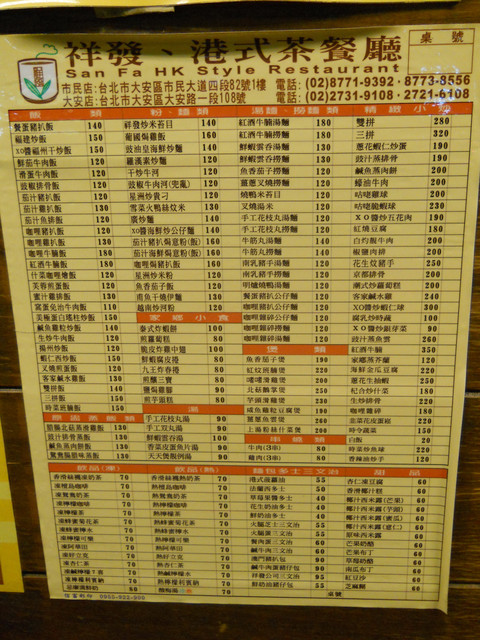 祥發、港式茶餐廳
桌號
San Fa HK Style Restaurant
市民店:台北市大安區市民大道四段82號1樓 電話:(02)8771-9392・8773-8556
大安店:台北市大安區大安路一段108號 電話:(02)2731-9108・2721-6108
飯類
餐蛋豬扒飯 140
福建炒飯 150
xo醬福州干炒飯 150
鮮茄牛肉飯 150
滑蛋牛肉飯 120
豉椒排骨飯 130
茄汁豬扒飯 130
茄汁雞扒飯 130
茄汁魚排飯 130
咖哩豬扒飯 130
咖哩雞扒飯 130
咖哩牛腩飯 180
紅酒牛腩飯 180
什菜咖哩燴飯 120
芙蓉煎蛋飯 120
蜜汁雞排飯 130
窩蛋免治牛肉飯 130
美極蛋白瑤柱炒飯 150
鹹魚雞粒炒飯 150
生炒牛肉飯 120
揚州炒飯 120
蝦仁西炒飯 150
叉燒煎蛋飯 120
客家鹹水雞飯 130
雙拼飯 140
三拼飯 150
時菜班腩飯 150
粉、麵類
祥發炒米苔目 140
龍國焗雞飯 160
豉油皇海鮮炒麵 150
羅漢素炒麵 120
干炒牛河 120
豉椒牛肉河(兜亂) 120
星洲炒貴刁 120
雪菜火鴨絲炆米 130
廣炒麵 140
xo醬海鮮炒公仔麵 150
茄汁豬扒焗意粉(飯) 160
茄汁海鮮焗意粉(飯) 160
咖哩豬扒焗飯 160
星洲炒米粉 120
魚香茄子飯 120
甫魚干燒伊麵 130
越南炒河粉 120
家鄉小食
泰式炸蝦餅 100
煎蘿蔔糕 80
脆皮炸雞中翅 100
鮮蝦腐皮捲 80
九王炸春捲 80
煎釀三寶 80
鹽焗雞腳 90
煎芋頭糕 80
湯
手工花枝丸湯 90
手工双丸湯 90
鮮蝦雲吞湯 100
香菜皮蛋魚片湯 90
天天煲靚例湯 90
原盅蒸飯類
臘腸北菇蒸滑雞飯 130
豉汁排骨蒸飯 130
鹹魚蒸肉餅飯 130
鴛鴦腸臘味蒸飯 130
湯麵、撈麵類
紅酒牛腩湯麵 180
紅酒牛腩撈麵 180
鮮蝦雲吞湯麵 130
鮮蝦雲吞撈麵 130
魚香茄子撈麵 120
薑蔥叉燒撈麵 120
燒鴨米苔目 130
叉燒湯米 120
手工花枝丸湯麵 120
手工花枝丸撈麵 120
牛筋丸湯麵 140
牛筋丸撈麵 140
南乳豬手湯麵 130
南乳豬手撈麵 130
明爐燒鴨湯麵 130
餐蛋豬扒公仔麵 130
咖哩豬扒公仔麵 130
咖哩雞碎公仔麵 130
咖哩雞碎撈麵 130
煲類
魚香茄子煲 190
紅炆班腩煲 220
啫啫滑雞煲 200
北菇鵝掌煲 250
芋頭滑雞煲 230
鹹魚雞粒豆腐煲 190
薑蔥魚雲煲 260
上湯粉絲什菜煲 180
串燒類
牛肉(3串) 80
雞肉(3串) 80
精緻小炒
雙拼 280
三拼 320
蔥花蝦仁炒蛋 190
豉汁蒸排骨 190
鹹魚蒸肉餅 200
蠔油牛肉 200
咕咾雞球 200
咕咾脆蝦球 230
XO醬炒五花肉 190
紅燒豆腐 180
白灼腹牛肉 200
椒鹽肉排 200
花生炆豬手 250
京都排骨 200
潮式炒蘿蔔糕 200
客家鹹水雞 240
XO醬炒蝦仁球 300
腐乳炒時蔬 100
XO醬炒銀芽菜 90
豉汁蒸魚雲 260
紅酒牛腩 350
家鄉蒸芹腩 220
海鮮金瓜豆腐 220
蔥花生抽蝦 250
杞合炒什菜 180
生炒排骨 220
咖哩雞碎 180
韭菜花皮蛋崧 220
時令蔬菜 150
白飯 20
時菜炒魚球 220
香辣油炒手 120
飲品(凍)
香港絲襪奶茶 70
凍樽島咖啡 70
凍鴛鴦奶茶 70
凍檸檬咖啡 70
凍檸檬茶 70
凍蜂蜜菊花茶 70
凍蜂蜜檸水 70
凍檸檬可樂 70
凍阿華田 70
凍好立克 70
凍杏仁茶 70
凍鹹檸檬7喜 70
凍檸檬利賓納 70
飲品(熱)
香港絲襪奶茶 70
熱樽島咖啡 70
熱鴛鴦奶茶 70
熱檸檬咖啡 70
熱檸檬茶 70
熱蜂蜜菊花茶 70
熱蜂蜜檸水 70
熱檸檬可樂 70
熱阿華田 70
熱好立克 70
熱杏仁茶 70
熱鹹檸檬水 70
熱檸檬利賓納 70
麵包多士三文治
港式菠蘿油 55
法蘭西多士 50
草莓果醬多士 40
花生奶油多士 40
鮮奶油多士 40
火腿芝士三文治 55
火腿蛋三文治 55
餐肉蛋三文治 60
鹹牛肉三文治 60
澳門豬扒包 90
鹹牛肉蛋豬仔包 90
祥發公司三文治 90
鮮奶油豬仔包 55
甜品
杏仁凍豆腐 60
香滑椰汁糕 60
椰汁西米露(芒果) 60
椰汁西米露(芋頭) 60
椰汁西米露(蜜瓜) 60
椰汁西米露(薏仁) 60
原味西米露 60
芒果奶酪 60
芒果布丁 60
草莓奶酪 60
南瓜布丁 60
紅豆沙 60
芝麻糊 60
桌號